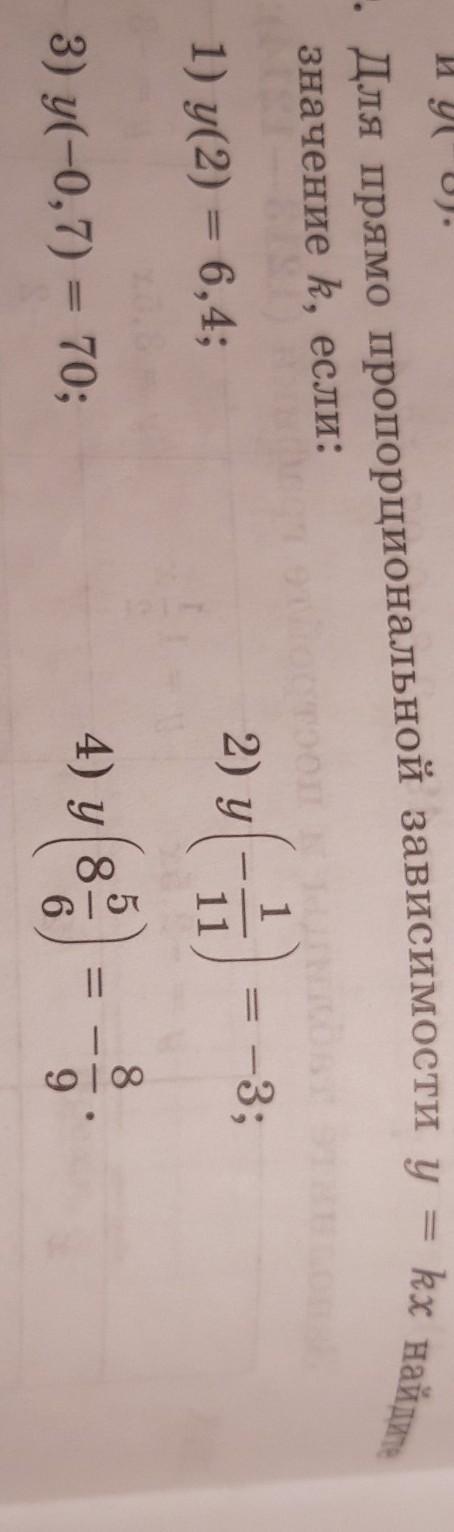 и y(-8).
. Для прямо пропорциональной зависимости y = kx найдите
значение k, если:
1) y(2) = 6,4; 2) y(-1/11) = -3;
3) y(-0,7) = 70; 4) y(8 5/6) = -8/9.